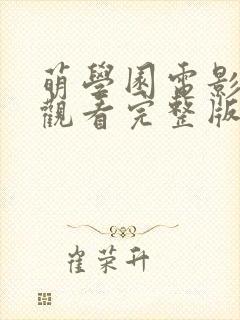 萌學園電影
觀看完整版
崔荣升